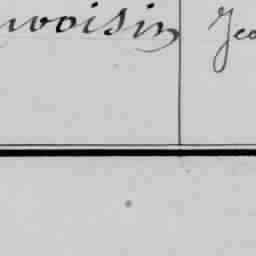 voisin Jea